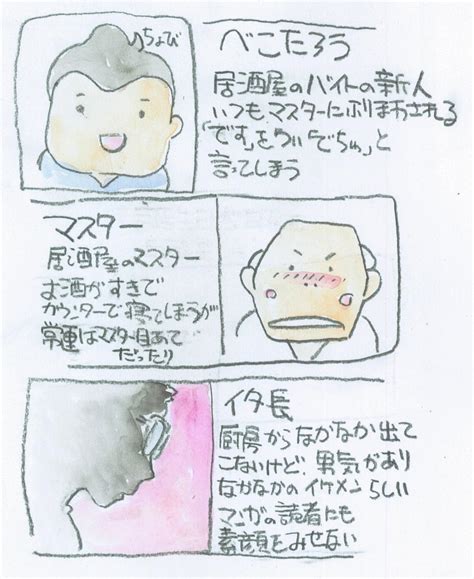 ちょび
べこたろう
居酒屋のバイトの新人
いつもマスターにふりまわされる
「です」をつい「でちゅ」と
言ってしまう
マスター
居酒屋のマスター
お酒がすきで
カウンターで寝てしまうが
常連はマスター目あて
だったり
イタ長
厨房からなかなか出て
こないけど、男気があり
なかなかのイケメンらしい
マンガの読者にも
素顔をみせない